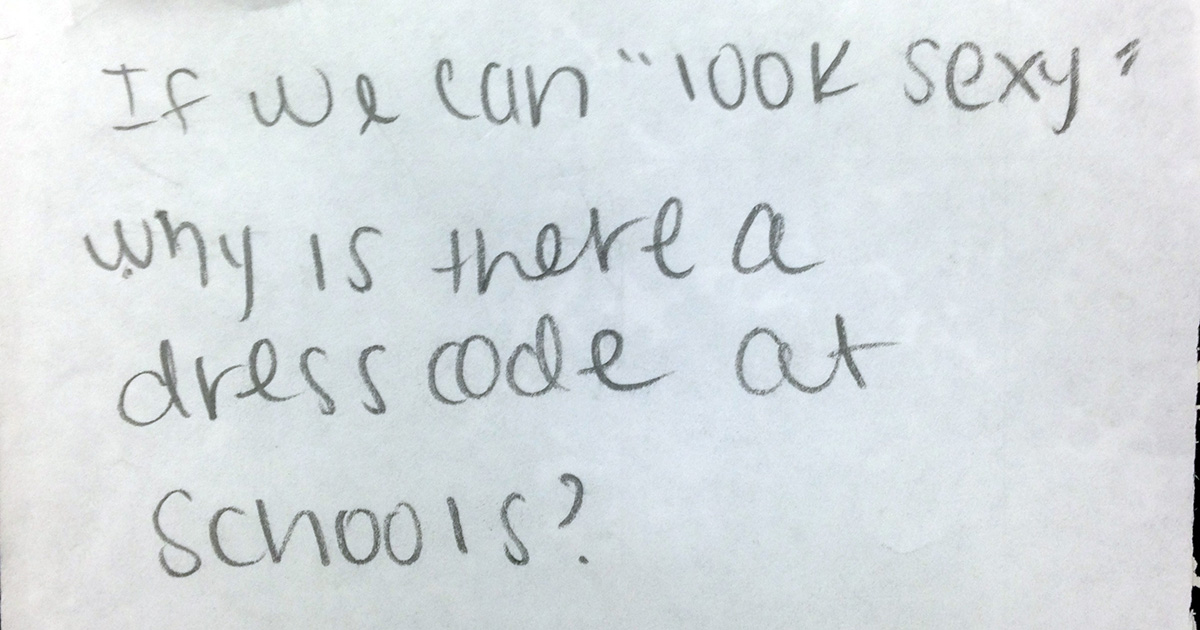 If we can "look sexy"
why is there a
dress code at
schools?